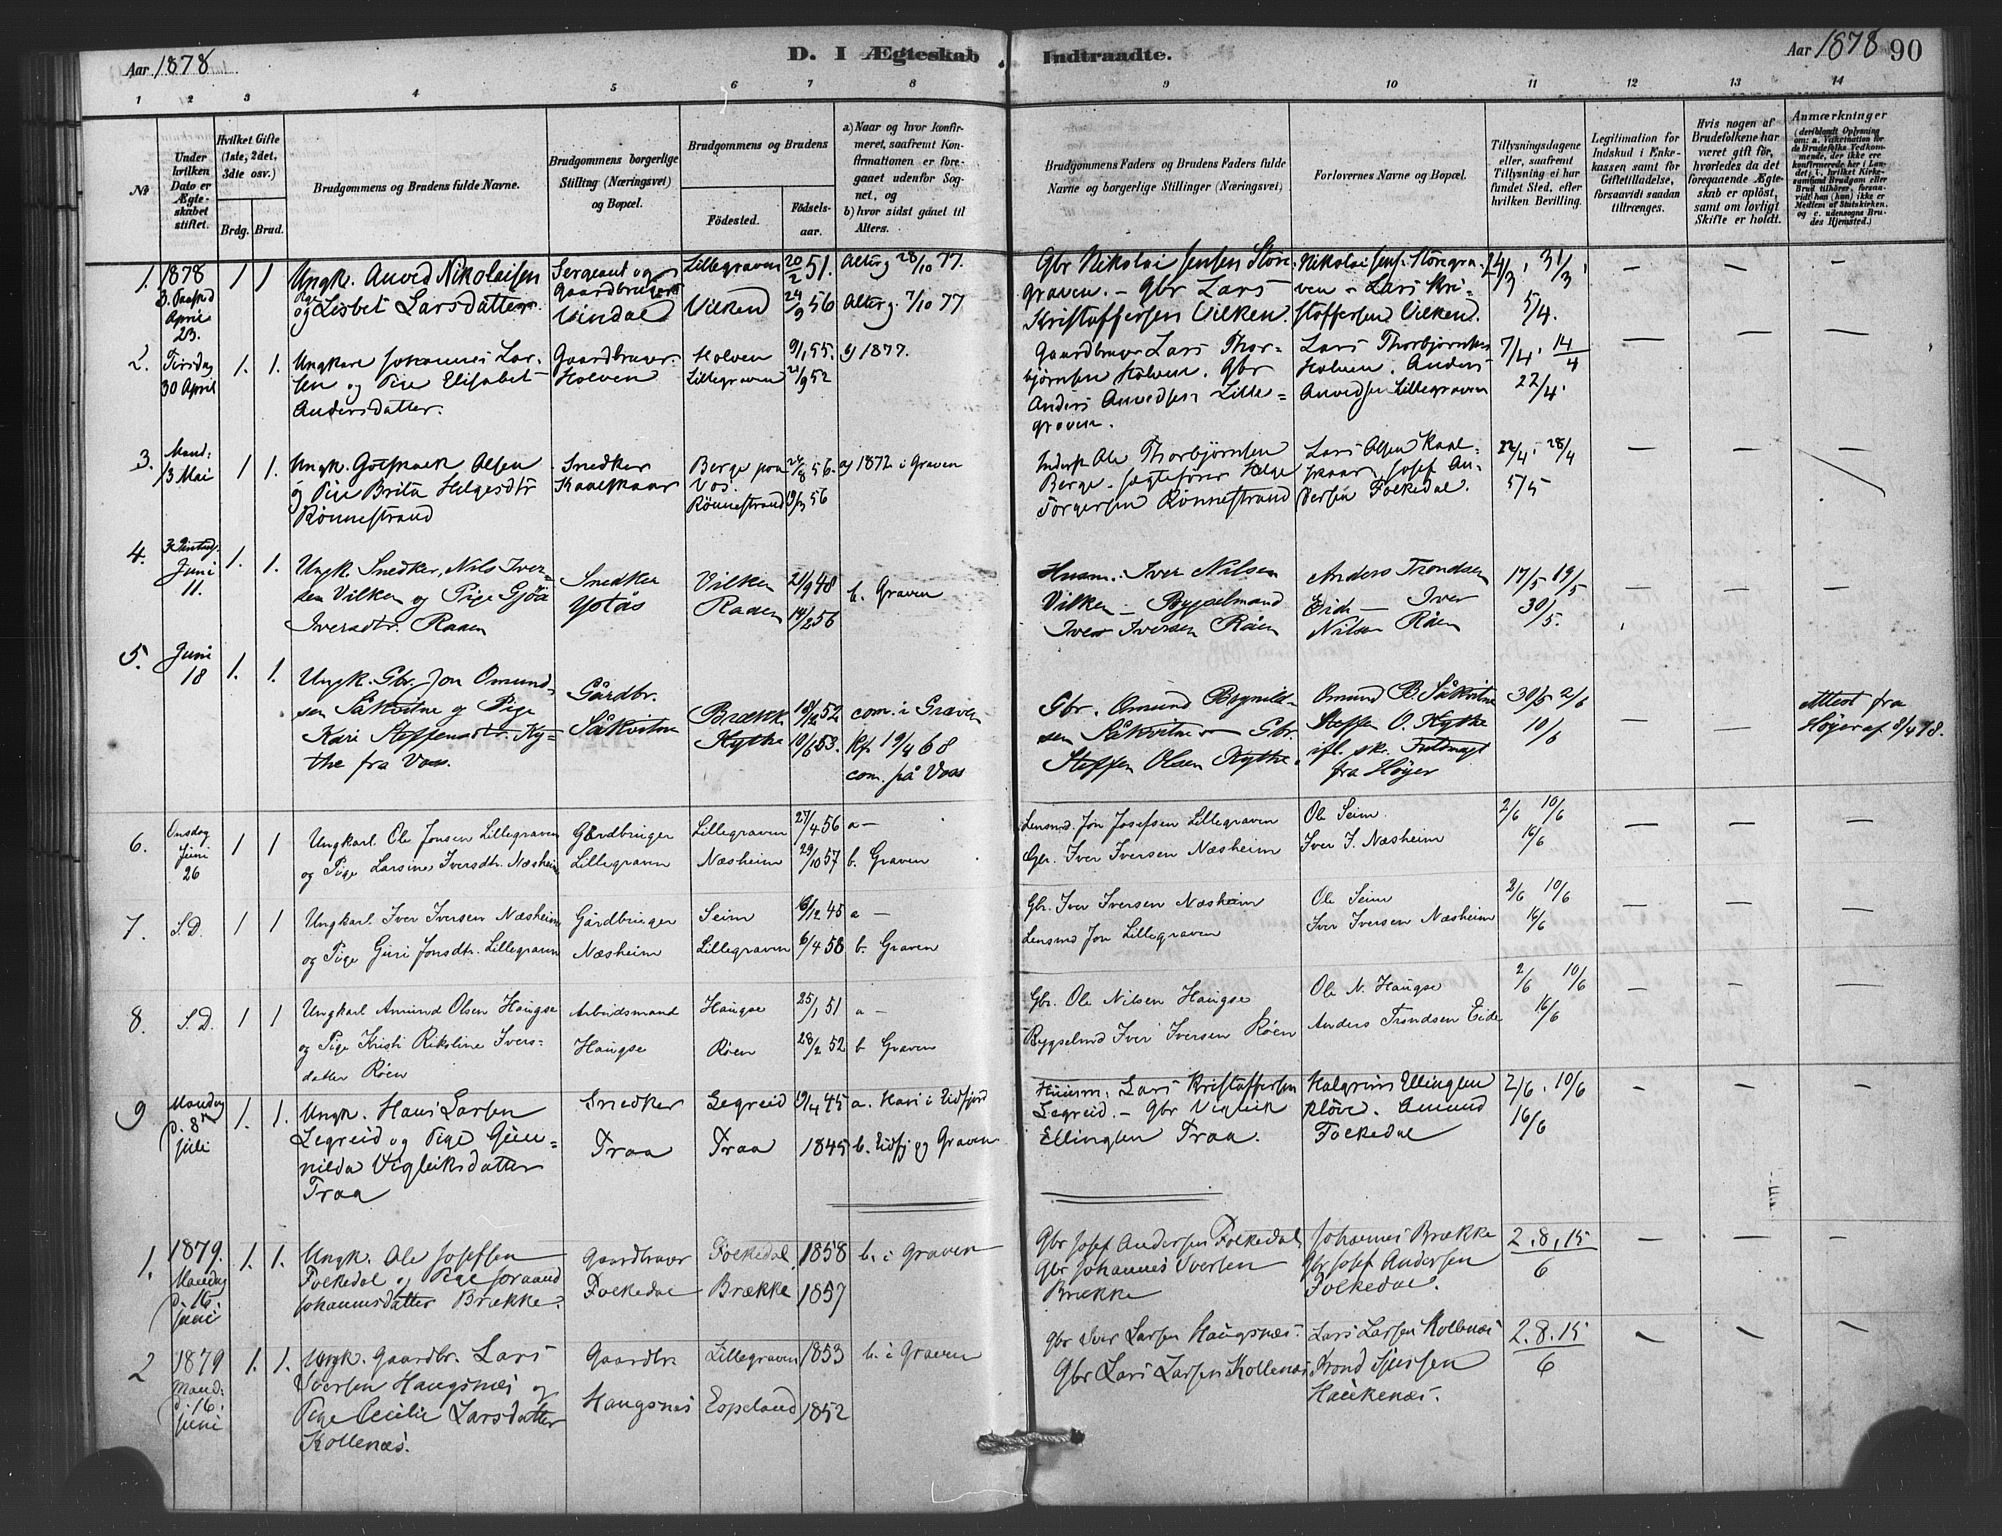 Aar 1878
D. I Ægteskab Indtraadte.
Aar 1878 90
1 2 3 4 5 6 7 8 9 10 11 12 13 14
No
Under hvilken Dato er Ægteskabet stiftet.
Hvilket Gifte (1ste, 2det, 3die osv.)
Brdg. Brud.
Brudgommens og Brudens fulde Navne.
Brudgommens borgerlige Stilling (Næringsvei) og Bopæl.
Brudgommens og Brudens
Fødested.
Fødselsaar.
a) Naar og hvor konfirmeret, saafremt Konfirmationen er foregaaet udenfor Sognet, og
b) hvor sidst gaaet til Alters.
Brudgommens Faders og Brudens Faders fulde Navne og borgerlige Stillinger (Næringsvei)
Forlovernes Navne og Bopæl.
Tillysningsdagene eller, saafremt Tillysning ei har fundet Sted, efter hvilken Bevilling.
Legitimation for Indskud i Enkekassen samt for Giftetilladelse, forsaavidt saadan tiltrænges.
Hvis nogen af Brudefolkene har været gift før, hvorledes da det foregaaende Ægteskab er opløst, samt om lovligt Skifte er holdt.
Anmærkninger
1. 1878 1 1 Ungk. Anved Nikolaisen Sergeant og Lillegraven 20/2 51. Alterg 28/10 77. Gbr Nikolai Jensen Store- Nikolai Jens. Storegra- 24/3, 31/3,
3. Paaskd April 23. og Pige Lisbet Larsdatter. Gaardbruger Vindal Vilken 24/9 56 Alterg. 7/10 77 graven. - Gbr Lars Kristaffersen Vilken. ven - Lars Kri- staffersen Vilken. 5/4.
2. Tirsdag 1. 1. Ungkare Johannes Lar- Gaardbruger Holven 9/1 55. a) 1877. Gaardbruger Lars Thor- Lars Thorbjørnsen 7/4, 14/4
30 April sen og Pige Elisabet Andersdatter. Holven Lillegraven 21/9 52 bjørnsen Holven. Gbr Anders Anvedsen Lille- graven. Holven. Anders Anvedsen Lillegraven 22/4.
3. Mand: 13 Mai 1 1. Ungk. Gotskalk Olsen Snedker Berge paa Vos. 24/8 56. a) 1872 i Graven Inderst Ole Thorbjørnsen Lars Olsen Kaal- 22/4. 28/4
og Pige Brita Helgesdtr Rønnestrand Kaalskaar Rønnestrand 19/3 56 Berge - Helge Torgersen Rønnestrand skaar, Josef An- dersen Folkedal. 5/5
4. 3 Pintsd. Juni 11. 1. 1. Ungk. Snedker, Nils Iver- Snedker Vilken 21/9 48 b. Graven Husm. Iver Nilsen Anders Trondsen 17/5 19/5
sen Vilken og Pige Gjøa Iversdtr. Raaen Ystås Raaen 14/2 56 Vilken - Bygselmand Iver Iversen Røen Eide - Iver Nilsen Røen 30/5.
5. Juni 18 1. 1. Ungk. Gbr. Jon Omund- Gårdbr. Brækk 18/12 52 com. i Graven Gbr. Omund Brynild- Omund B Såkvitne 30/5 2/6 Attest fra
sen Såkvitne og Pige Kari Steffensdtr. Ky- the fra Voss. Såkvitne Kythe 10/6 53. Kf. 19/4 68 com. på Voss sen Såkvitne - Gbr. Steffen Olsen Kythe. Steffen O. Kythe ifl. skr. Fuldmagt fra Høyer 10/6 Høyer af 8/4 78.
6. Onsdag Juni 26 1 1 Ungkarl Ole Jonsen Lillegraven Gårdbruger Lillegraven 27/4 56 a - Lensmd. Jon Josefsen Lillegraven Ole Seim 2/6 10/6
og Pige Larsine Iversdtr. Næsheim Lillegraven Næsheim 29/10 57 b. Graven Gbr. Iver Iversen Næsheim Iver I. Næsheim 16/6
7. S.D. 1 1 Ungkarl Iver Iversen Næsheim Gårdbruger Seim 16/12 45 a - Gbr. Iver Iversen Næsheim Ole Seim 2/6 10/6
og Pige Guri Jonsdtr. Lillegraven Næsheim Lillegraven 6/4 58 b. Graven Lensmd Jon Lillegraven Iver Iversen Næsheim 16/6
8. S.D. 1 1 Ungkarl Amund Olsen Haugse Arbeidsmand Haugse 25/1 51 a - Gbr. Ole Nilsen Haugse Ole N. Haugse 2/6 10/6
og Pige Kristi Rikoline Ivers- datter Røen Haugse Røen 28/2 52 b Graven Bygselmd Iver Iversen Røen Anders Trondsen Eide 16/6
9 Mandag d. 8de Juli 1. 1. Ungk. Hans Larsen Snedker Legreid 19/4 45 a. Kari i Eidfjord Huusm. Lars Kristaffersen Halgrim Ellingsen 2/6. 10/6
Legreid og Pige Gun- nilda Vigleiksdatter Traa Traa Traa 1845 b. Eidfj og Graven Legreid. - Gbr Vigleik Ellingsen Traa. Kløve. Amund Folkedal 16/6
1. 1879. Mandag d. 16. Juni 1. 1. Ungk. Ole Josefsen Gaardbruger Folkedal 1858 b. i Graven Gbr Josef Andersen Folkedal Johannes Brække 2. 8. 15
Folkedal og Pige Joraand Johannesdatter Brække. Folkedal Brække 1857 Gbr Johannes Iversen Brække Gbr Josef Andersen Folkedal. 6
2 1879 Mand: d. 16. Juni 1. 1. Ungk. Gaardbr. Lars Gaardbr Lillegraven 1853 b. i Graven Gbr Iver Larsen Haugsnæs. Lars Larsen Kollenæs 2. 8. 15
Iversen Haugsnæs og Pige Cecilie Larsdatter Kollenæs. Haugsnæs Espeland 1852 Gbr Lars Larsen Kollenæs Trond Sjursen Haukenæs. 6